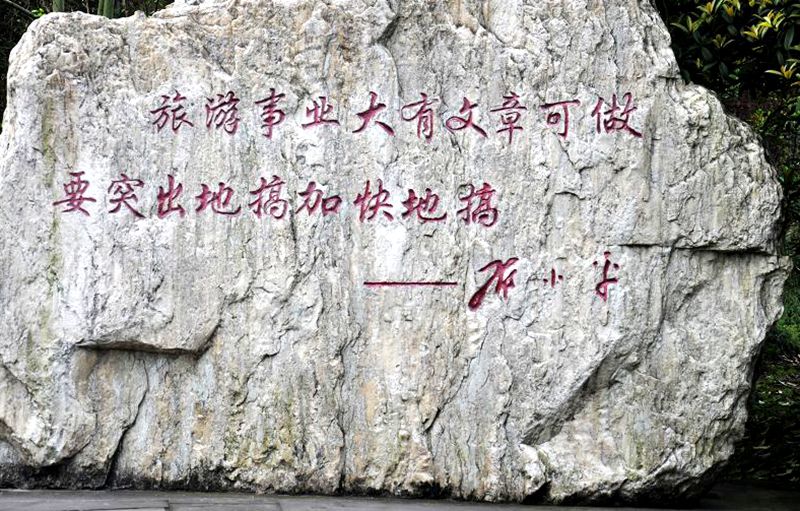 旅游事业大有文章可做
要突出地搞加快地搞
——邓小平